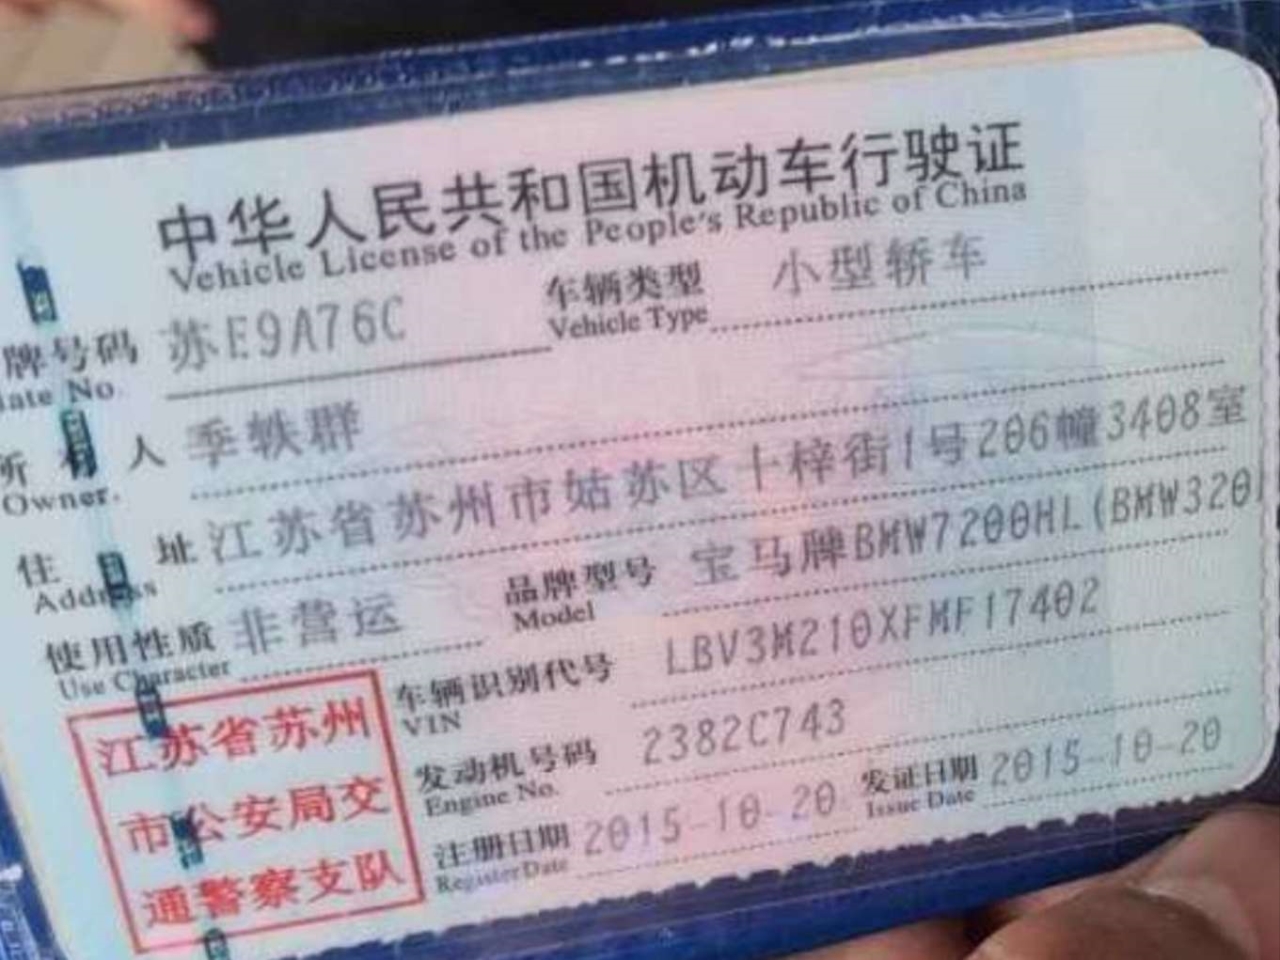 中华人民共和国机动车行驶证
Vehicle License of the People's Republic of China
牌号码 苏E9A76C 车辆类型 小型轿车
late No. Vehicle Type
所有人 季轶群
Owner
住址 江苏省苏州市姑苏区十梓街1号206幢3408室
Address
使用性质 非营运 品牌型号 宝马牌BMW7200HL(BMW320
Use Character Model
车辆识别代号 LBV3M210XFMF17402
VIN
发动机号码 2382C743
Engine No.
注册日期 2015-10-20 发证日期 2015-10-20
Register Date Issue Date
江苏省苏州
市公安局交
通警察支队